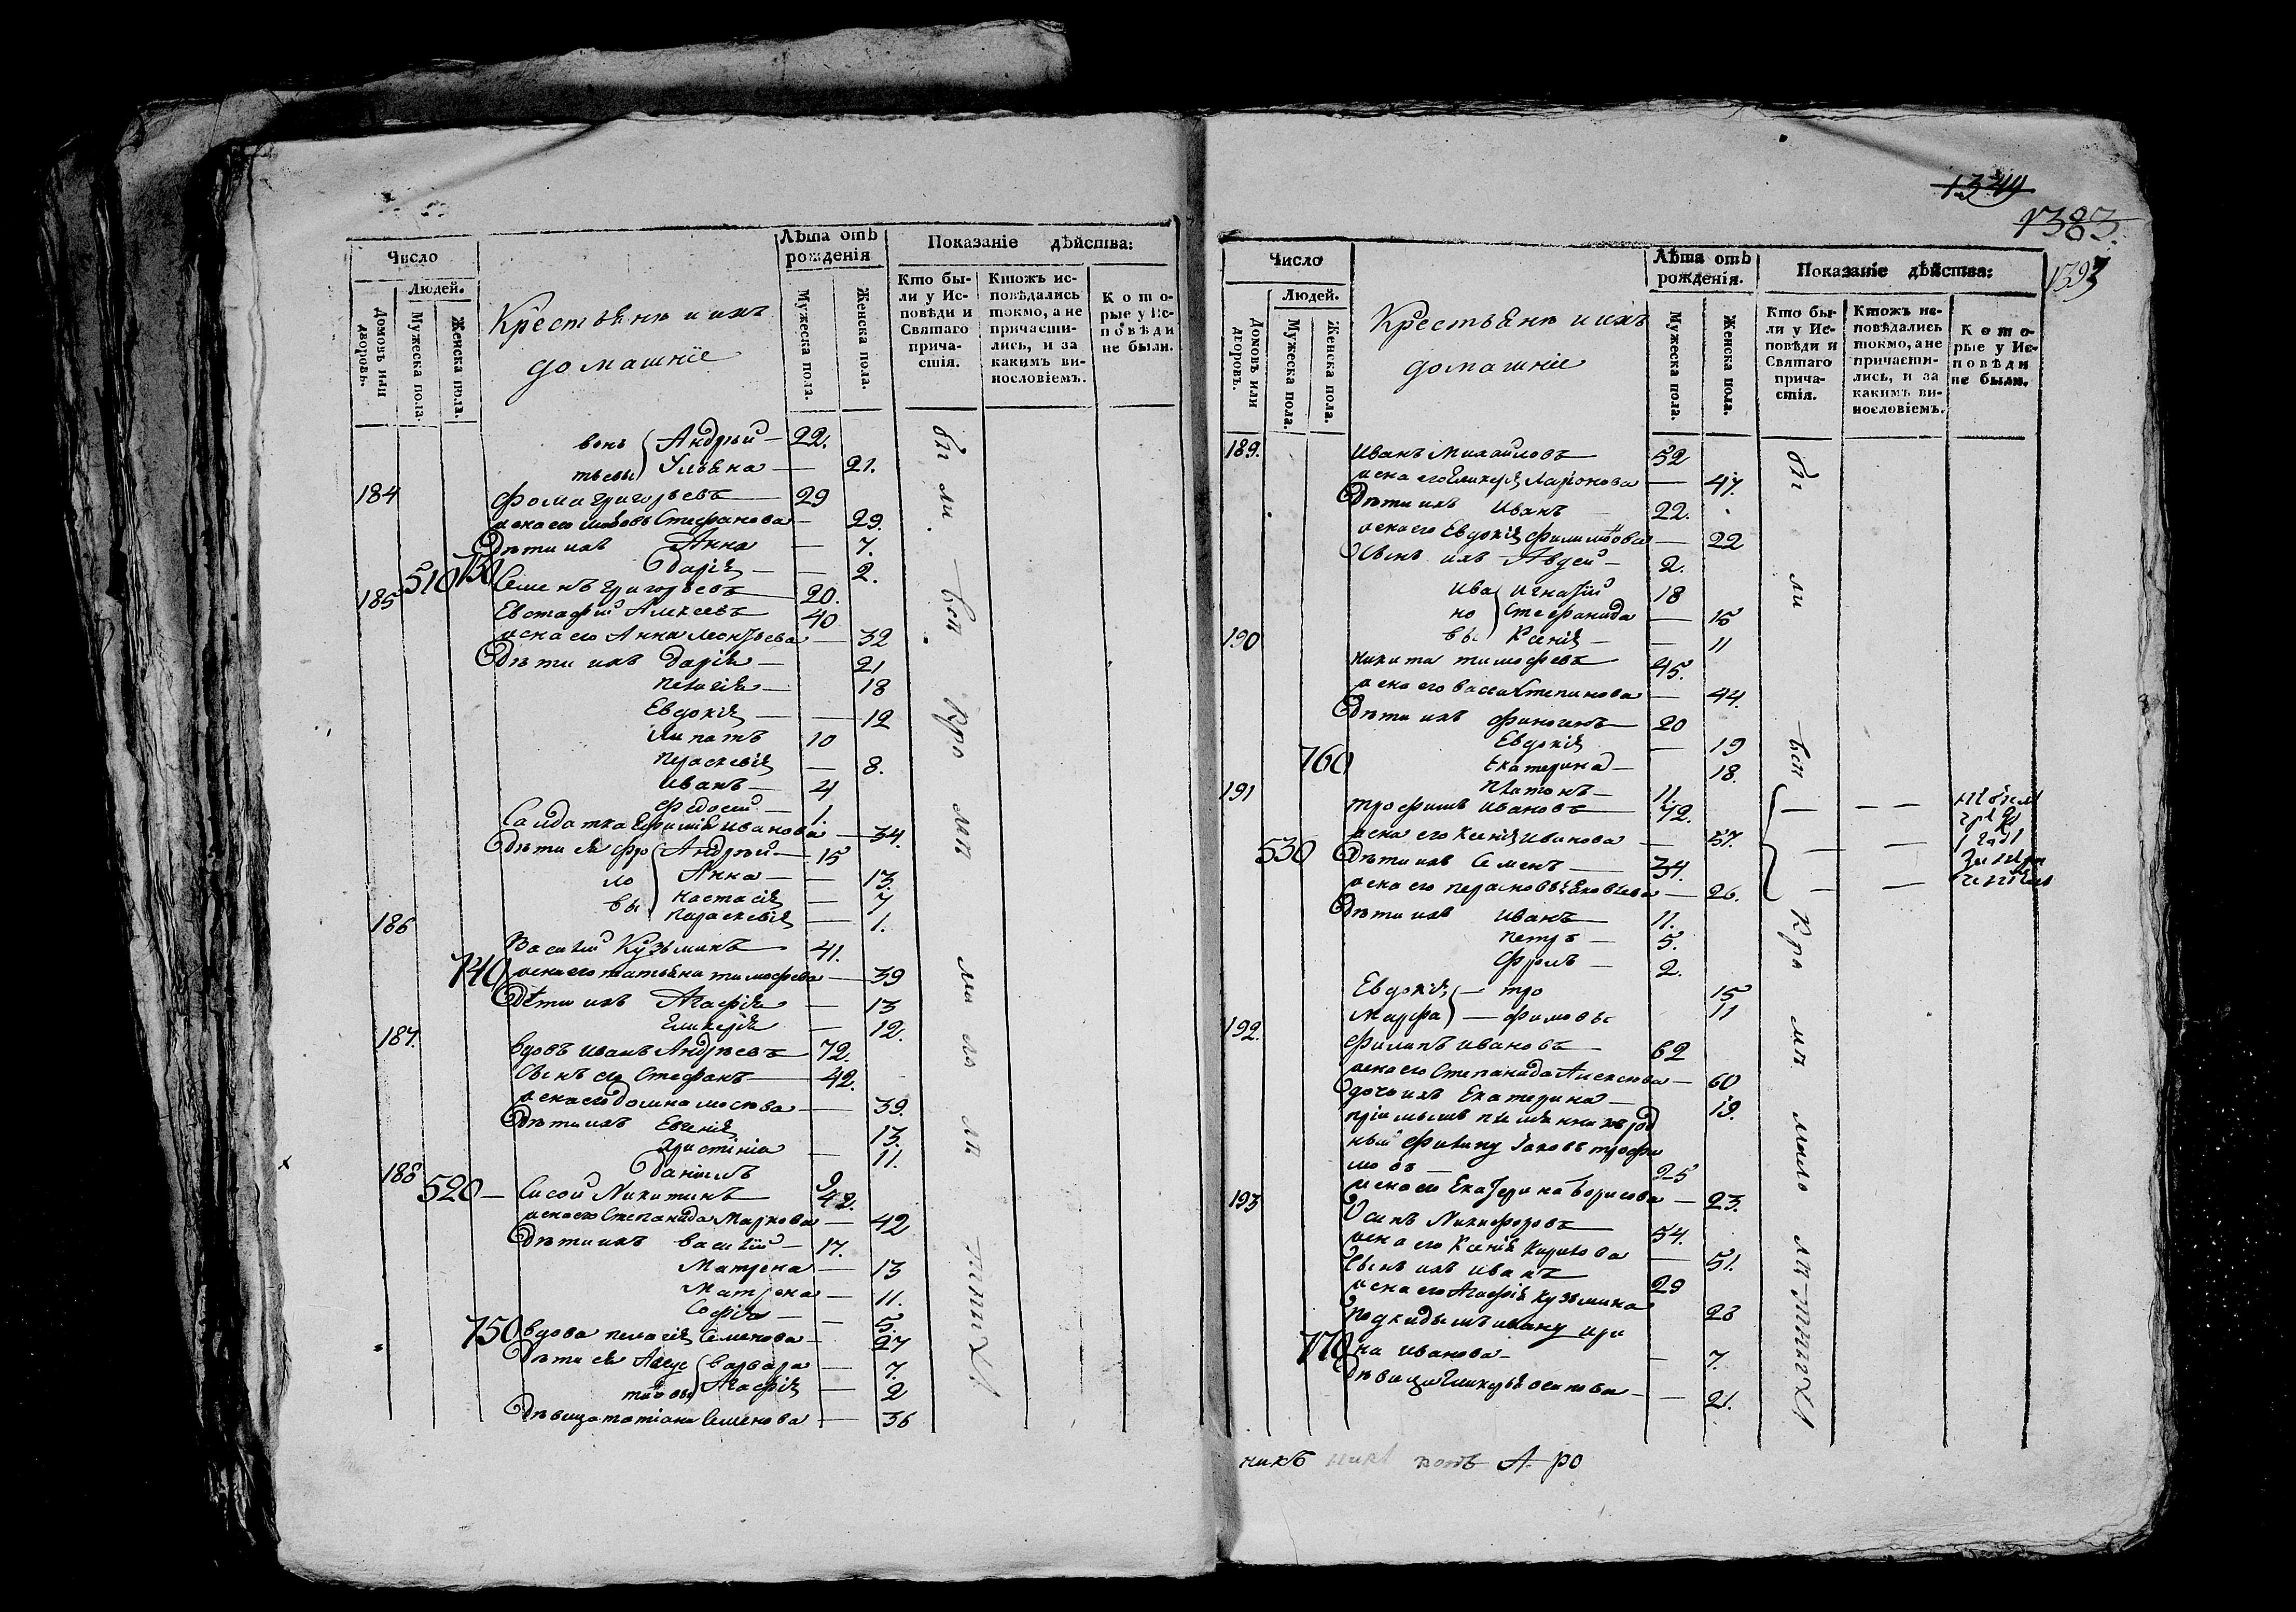 Число
Людей.
Домовъ или дворовъ.
Мужеска пола.
Женска пола.
Крестьяне и ихъ
домашніе
Лѣта отъ
рожденія
Мужеска пола.
Женска пола.
Показаніе дѣйства:
Кто бы-
ли у Ис-
повѣди и
Святаго
прича-
стія.
Ктожъ ис-
повѣдались
токмо, а не
причасти-
лись, и за
какимъ ви-
нословіемъ.
Кото-
рые у Ис-
повѣди
не были.
Андрѣй — 22.
Ульяна — 21.
184 Фома Григорьевъ 29
жена его Любовь Стефанова — 29.
Дѣти ихъ Анна — 7.
510 730 Дарія — 2.
185 Семенъ Григорьевъ 20.
Евстафій Алексеевъ 40
жена его Анна Леонтьева — 32
Дѣти ихъ Дарія — 21
Пелагія — 18
Евдокія — 12
Ипатъ 10
Параскевія — 8.
Иванъ — 4
Федосій — 1.
Салдатка Ефимія Иванова — 34.
Дѣти ея Фро Андрѣй — 15
ло Анна — 13.
вы Настасія — 7
Параскевія — 1.
186 Василій Кузьминъ 41.
740 жена его Татьяна Тимофеева — 39
Дѣти ихъ Агафія — 13
Гликерія — 12.
187. Вдовъ Иванъ Андреевъ 72.
Сынъ его Стефанъ — 42.
жена его Домна Мосеева — 39.
Дѣти ихъ Евгенія 13.
Христініа — 11.
Даніилъ 9
188 520 — Сисой Никитинъ 42.
жена его Степанида Маркова — 42
Дѣти ихъ Василій — 17.
Матрена — 13
Матрена — 11.
Софія — 5.
750 Вдова Пелагія Семенова — 27
Дѣти ея Варвара — 7.
Агафія — 2
Дѣвица Татіана Семенова — 36
1344
1383.
1393
Число
Людей.
Домовъ или дворовъ.
Мужеска пола.
Женска пола.
Крестьяне и ихъ
домашніе
Лѣта отъ
рожденія.
Мужеска пола.
Женска пола.
Показаніе дѣйства:
Кто бы-
ли у Ис-
повѣди и
Святаго
прича-
стія.
Ктожъ ис-
повѣдались
токмо, а не
причасти-
лись, и за
какимъ ви-
нословіемъ.
Кото-
рые у Ис-
повѣди
не были.
189. Иванъ Михайловъ 52
жена его Гликерія Ларіонова — 47.
Дѣти ихъ Иванъ 22.
жена его Евдокія — 22
Сынъ ихъ Авдей — 2.
Ива Игнатій 18
но Стефанида — 15
вы Ксенія — 11
190 Никита Тимофеевъ 45.
жена его Васса Степанова — 44.
Дѣти ихъ Финогенъ 20
Евдокія — 19
760 Екатерина — 18.
Платонъ — 11.
191 Трофимъ Ивановъ 72.
жена его Ксенія Иванова — 57.
530 Дѣти ихъ Семенъ — 34.
жена его — 26.
Дѣти ихъ Иванъ 11.
Петръ — 5.
Фролъ — 2.
Евдокія — тро 15
Марфа — фимовы 11
192. Филипъ Ивановъ — 62
жена его Степанида Алексеева — 60
Дочь ихъ Екатерина — 19.
Яковъ Трофи
мовъ — 25
жена его Екатерина Борисова — 23.
193 Осипъ Никифоровъ 54.
жена его Ксенія Карпова — 51.
Сынъ ихъ Иванъ 29
жена его Агафія Кузьмина 28
Подкидышъ Ивану Ири
770 на Иванова — 7.
Дѣвица Гликерья Осипова — 21.
никъ попъ А ро